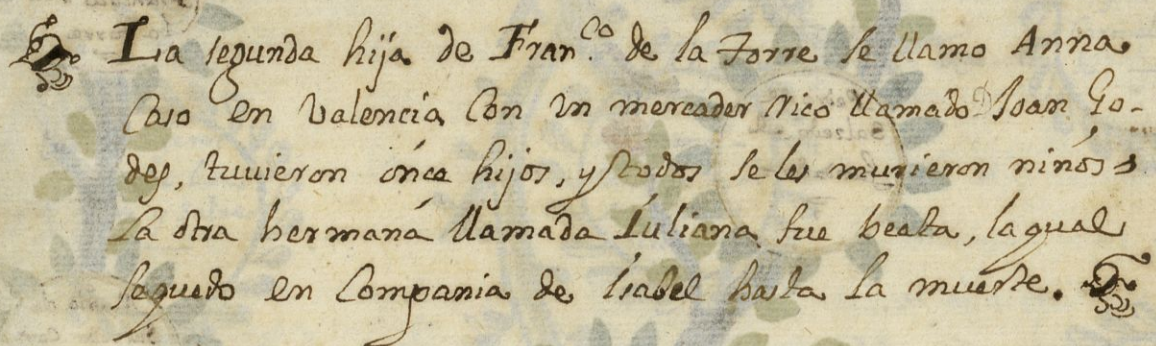 La segunda hija de Fran.co de la Torre se llamo Anna
Caso en Valencia con un mercader rico llamado D Joan Go-
des, tuvieron ónce hijos, y todos se les murieron niños
La otra hermana llamada Iuliana fue beata, la qual
se quedo en compania de Isabel hasta la muerte.